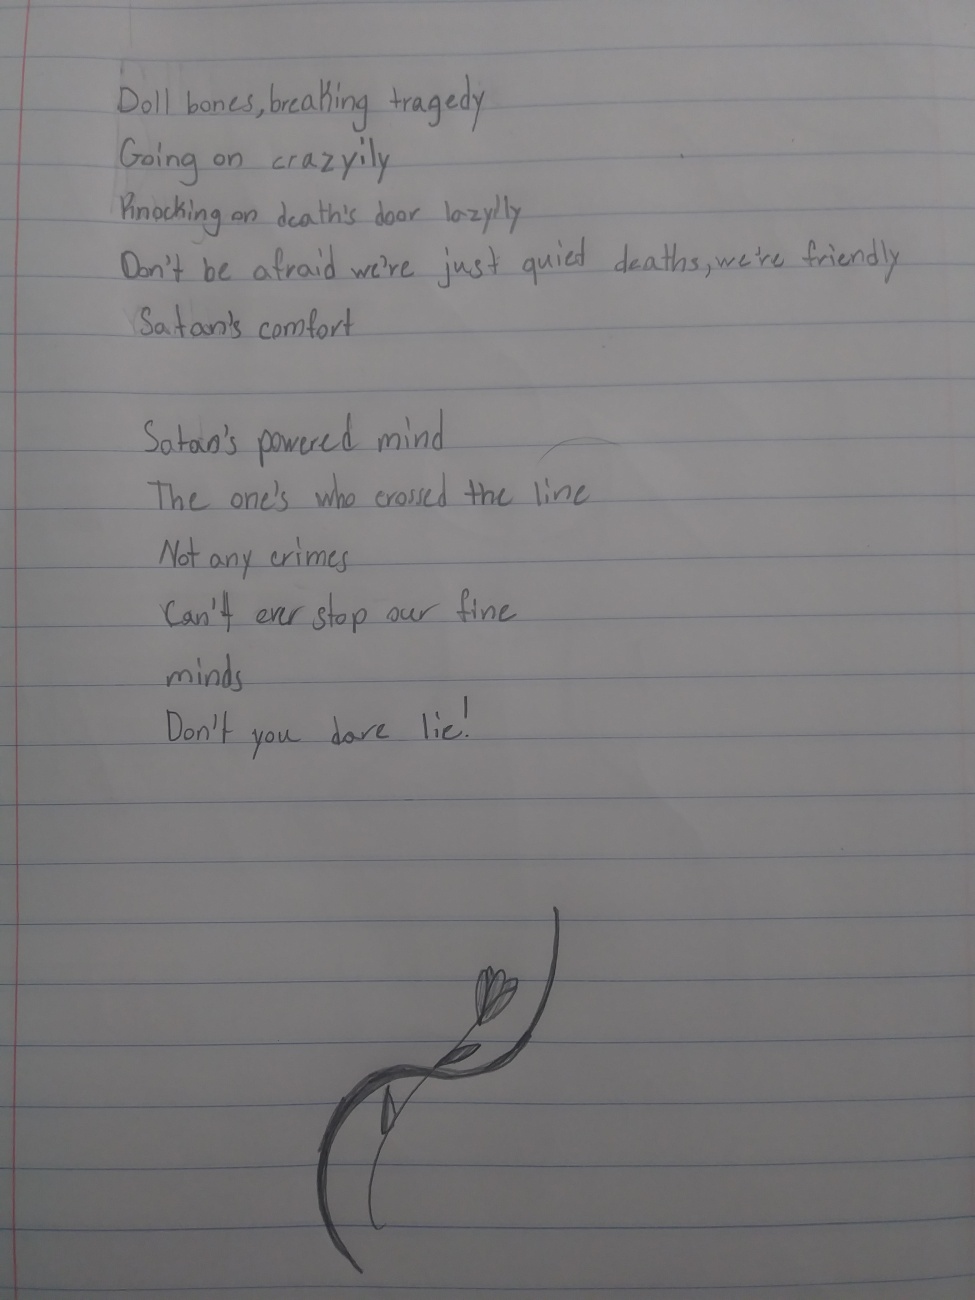 Doll bones, breaking tragedy
Going on crazyily
Knocking on death's door lazylly
Don't be afraid we're just quiet deaths, we're friendly
Satan's comfort
Satan's powered mind
The one's who crossed the line
Not any crimes
Can't ever stop our fine
minds
Don't you dare lie!